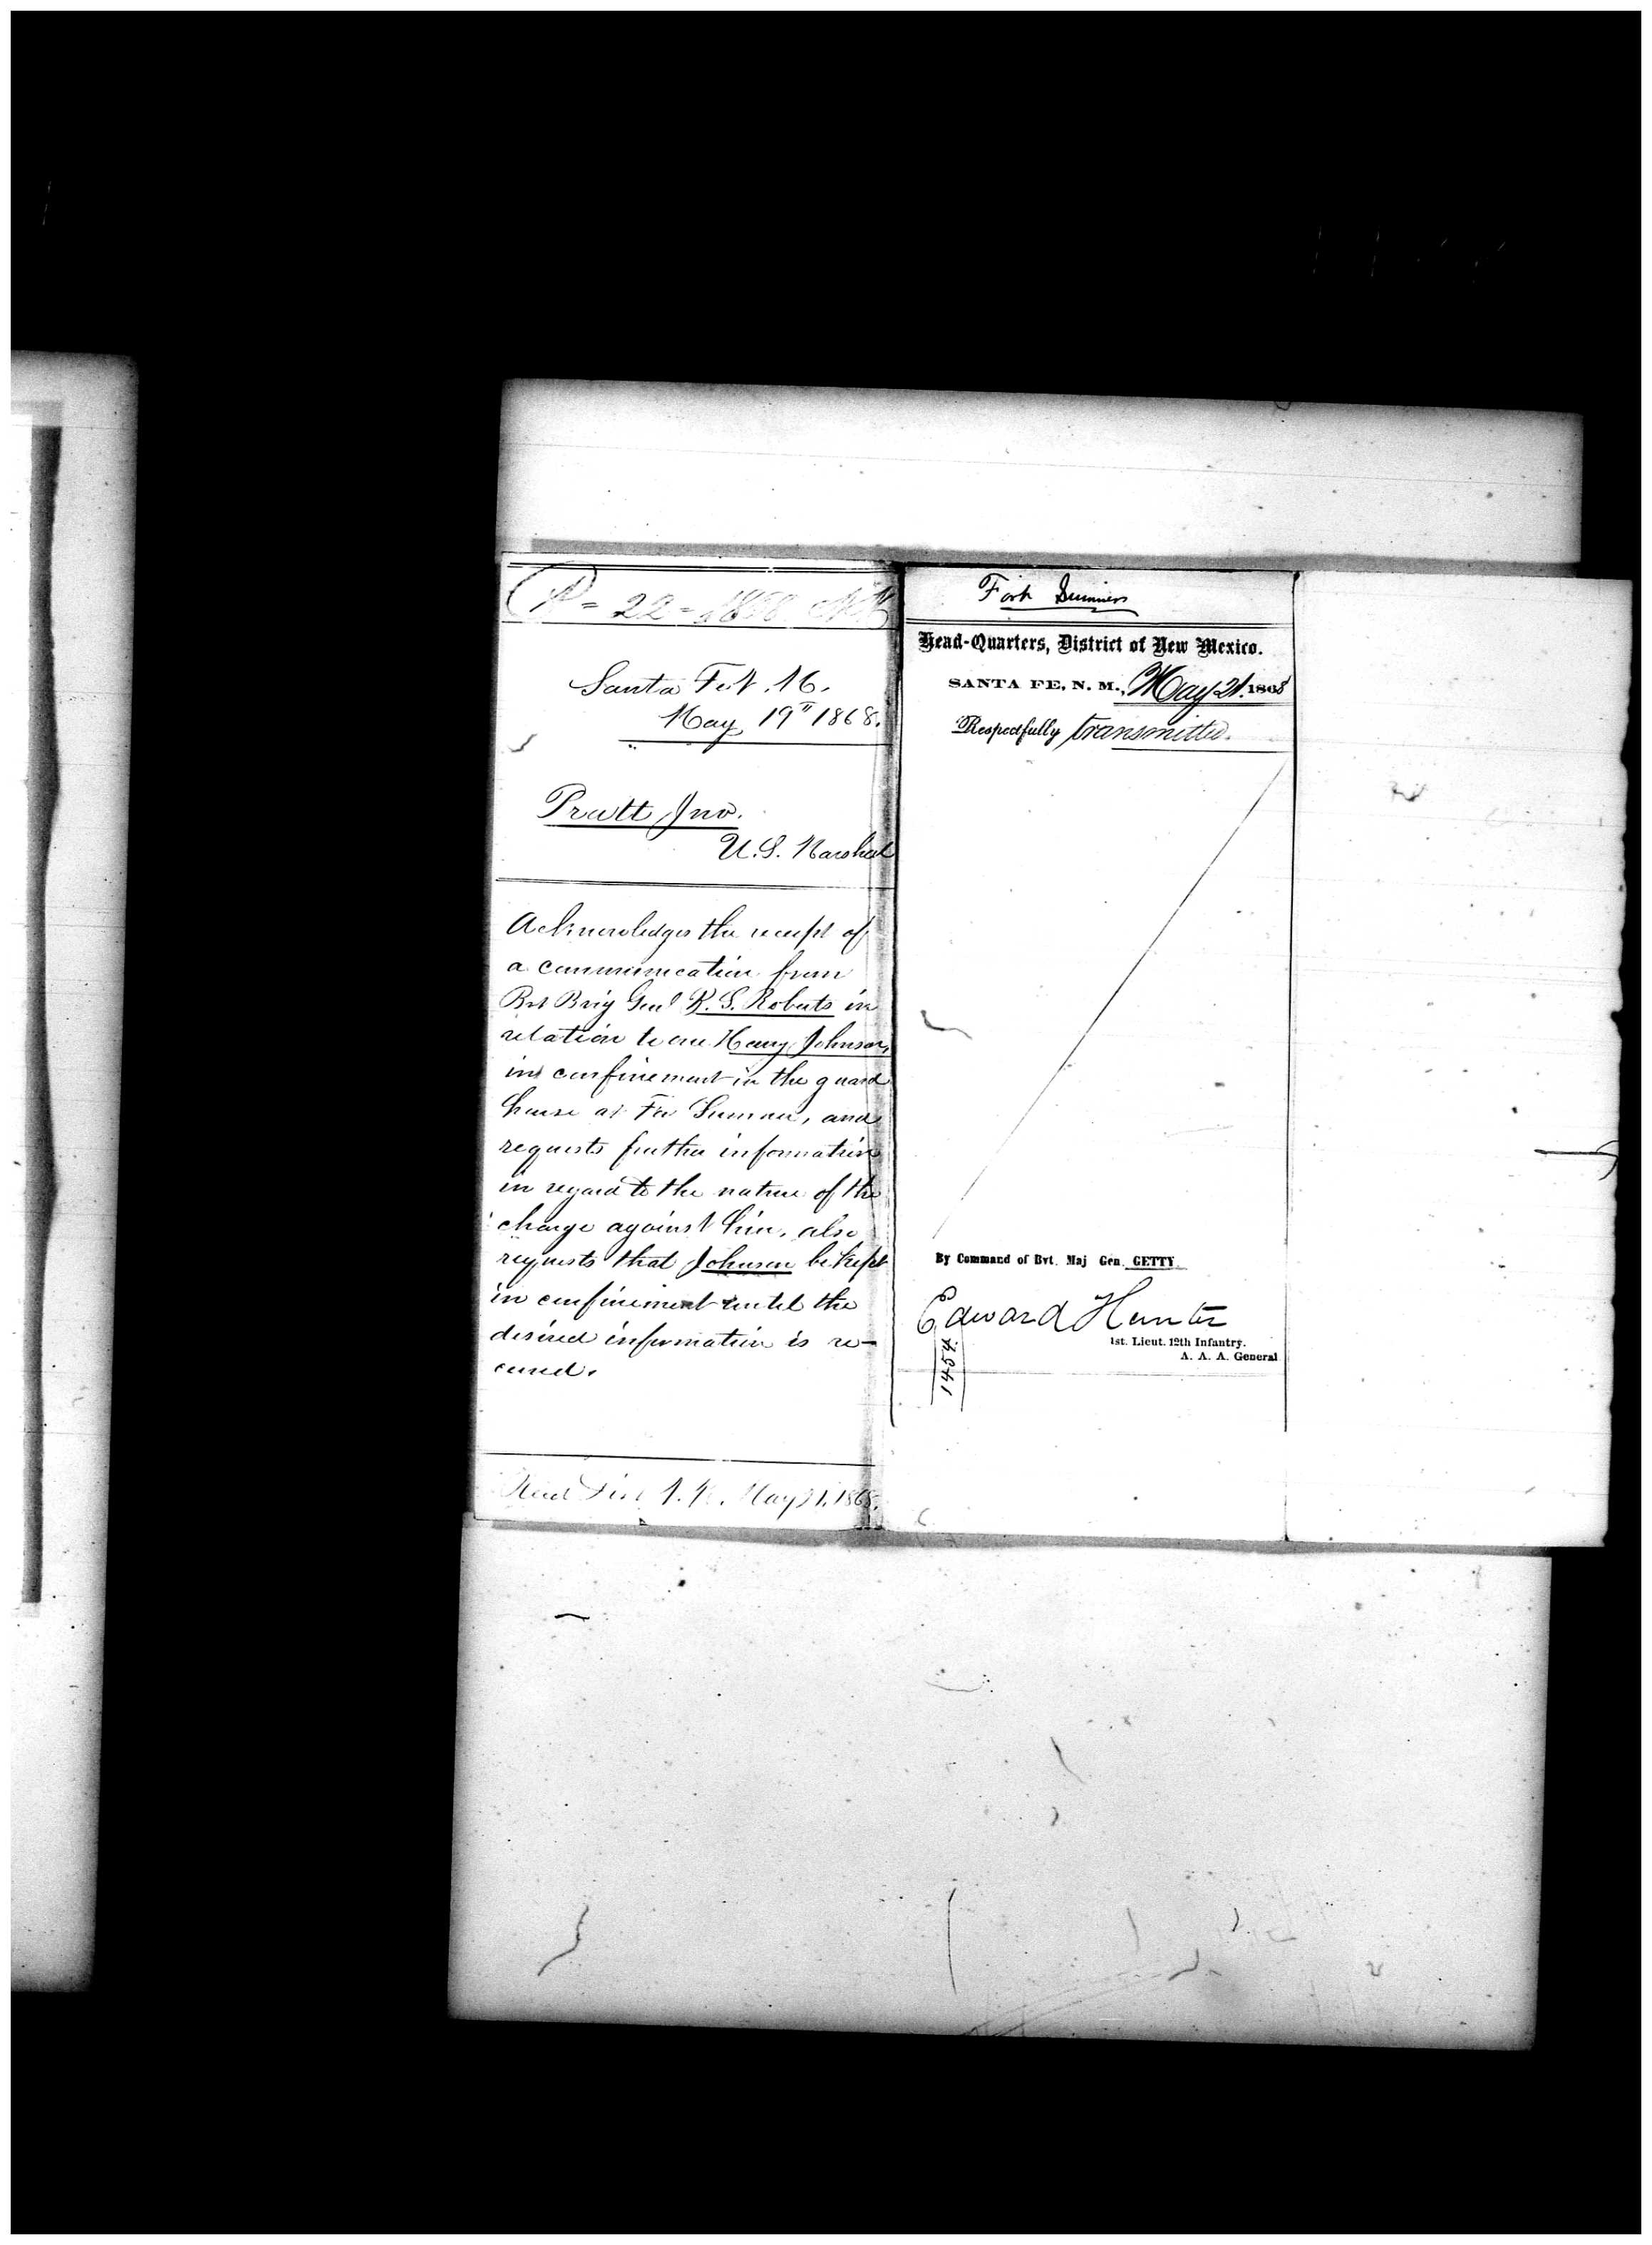 P = 22 = 1868
Santa Fe N. M.
May 19" 1868.
Pratt Jno.
U. S. Marshal
Acknowledges the receipt of
a communication from
Bvt Brig Genl B. S. Roberts in
relation to one Henry Johnson,
in confinement in the guard
house at Ft Sumner, and
requests further information
in regard to the nature of the
charge against him, also
requests that Johnson be kept
in confinement until the
desired information is re-
ceived.
Head Dist N. M. May 21, 1868.
Fort Sumner
Head-Quarters, District of New Mexico.
SANTA FE, N. M., May 21. 1868
Respectfully transmitted.
By Command of Bvt. Maj Gen. GETTY
Edward Hunter
1st. Lieut. 12th Infantry.
A. A. A. General
1454